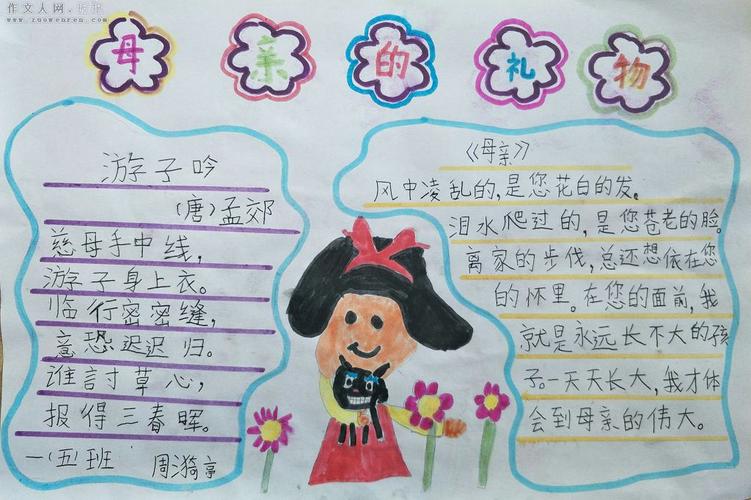 作文人网
www.zuowenren.com
母亲的礼物
游子吟
(唐)孟郊
慈母手中线,
游子身上衣。
临行密密缝,
意恐迟迟归。
谁討草心,
报得三春晖。
一(五)班 周漪亭
《母亲》
风中凌乱的,是您花白的发。
泪水爬过的,是您苍老的脸。
离家的步伐,总还想依在您
的怀里。在您的面前,我
就是永远长不大的孩
子。一天天长大,我才体
会到母亲的伟大。